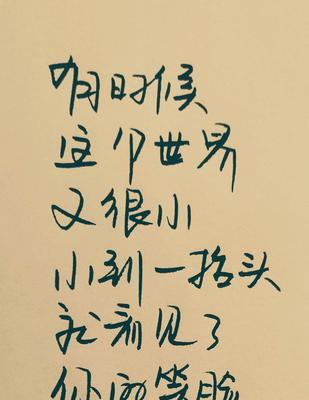 有时候
这个世界
又很小
小到一抬头
就看见了
你的笑脸